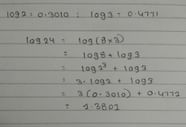 log2 = 0.3010 ; log3 = 0.4771
log24 = log(8×3)
= log8 + log3
= log2³ + log3
= 3·log2 + log3
= 3(0.3010) + 0.4771
= 1.3801